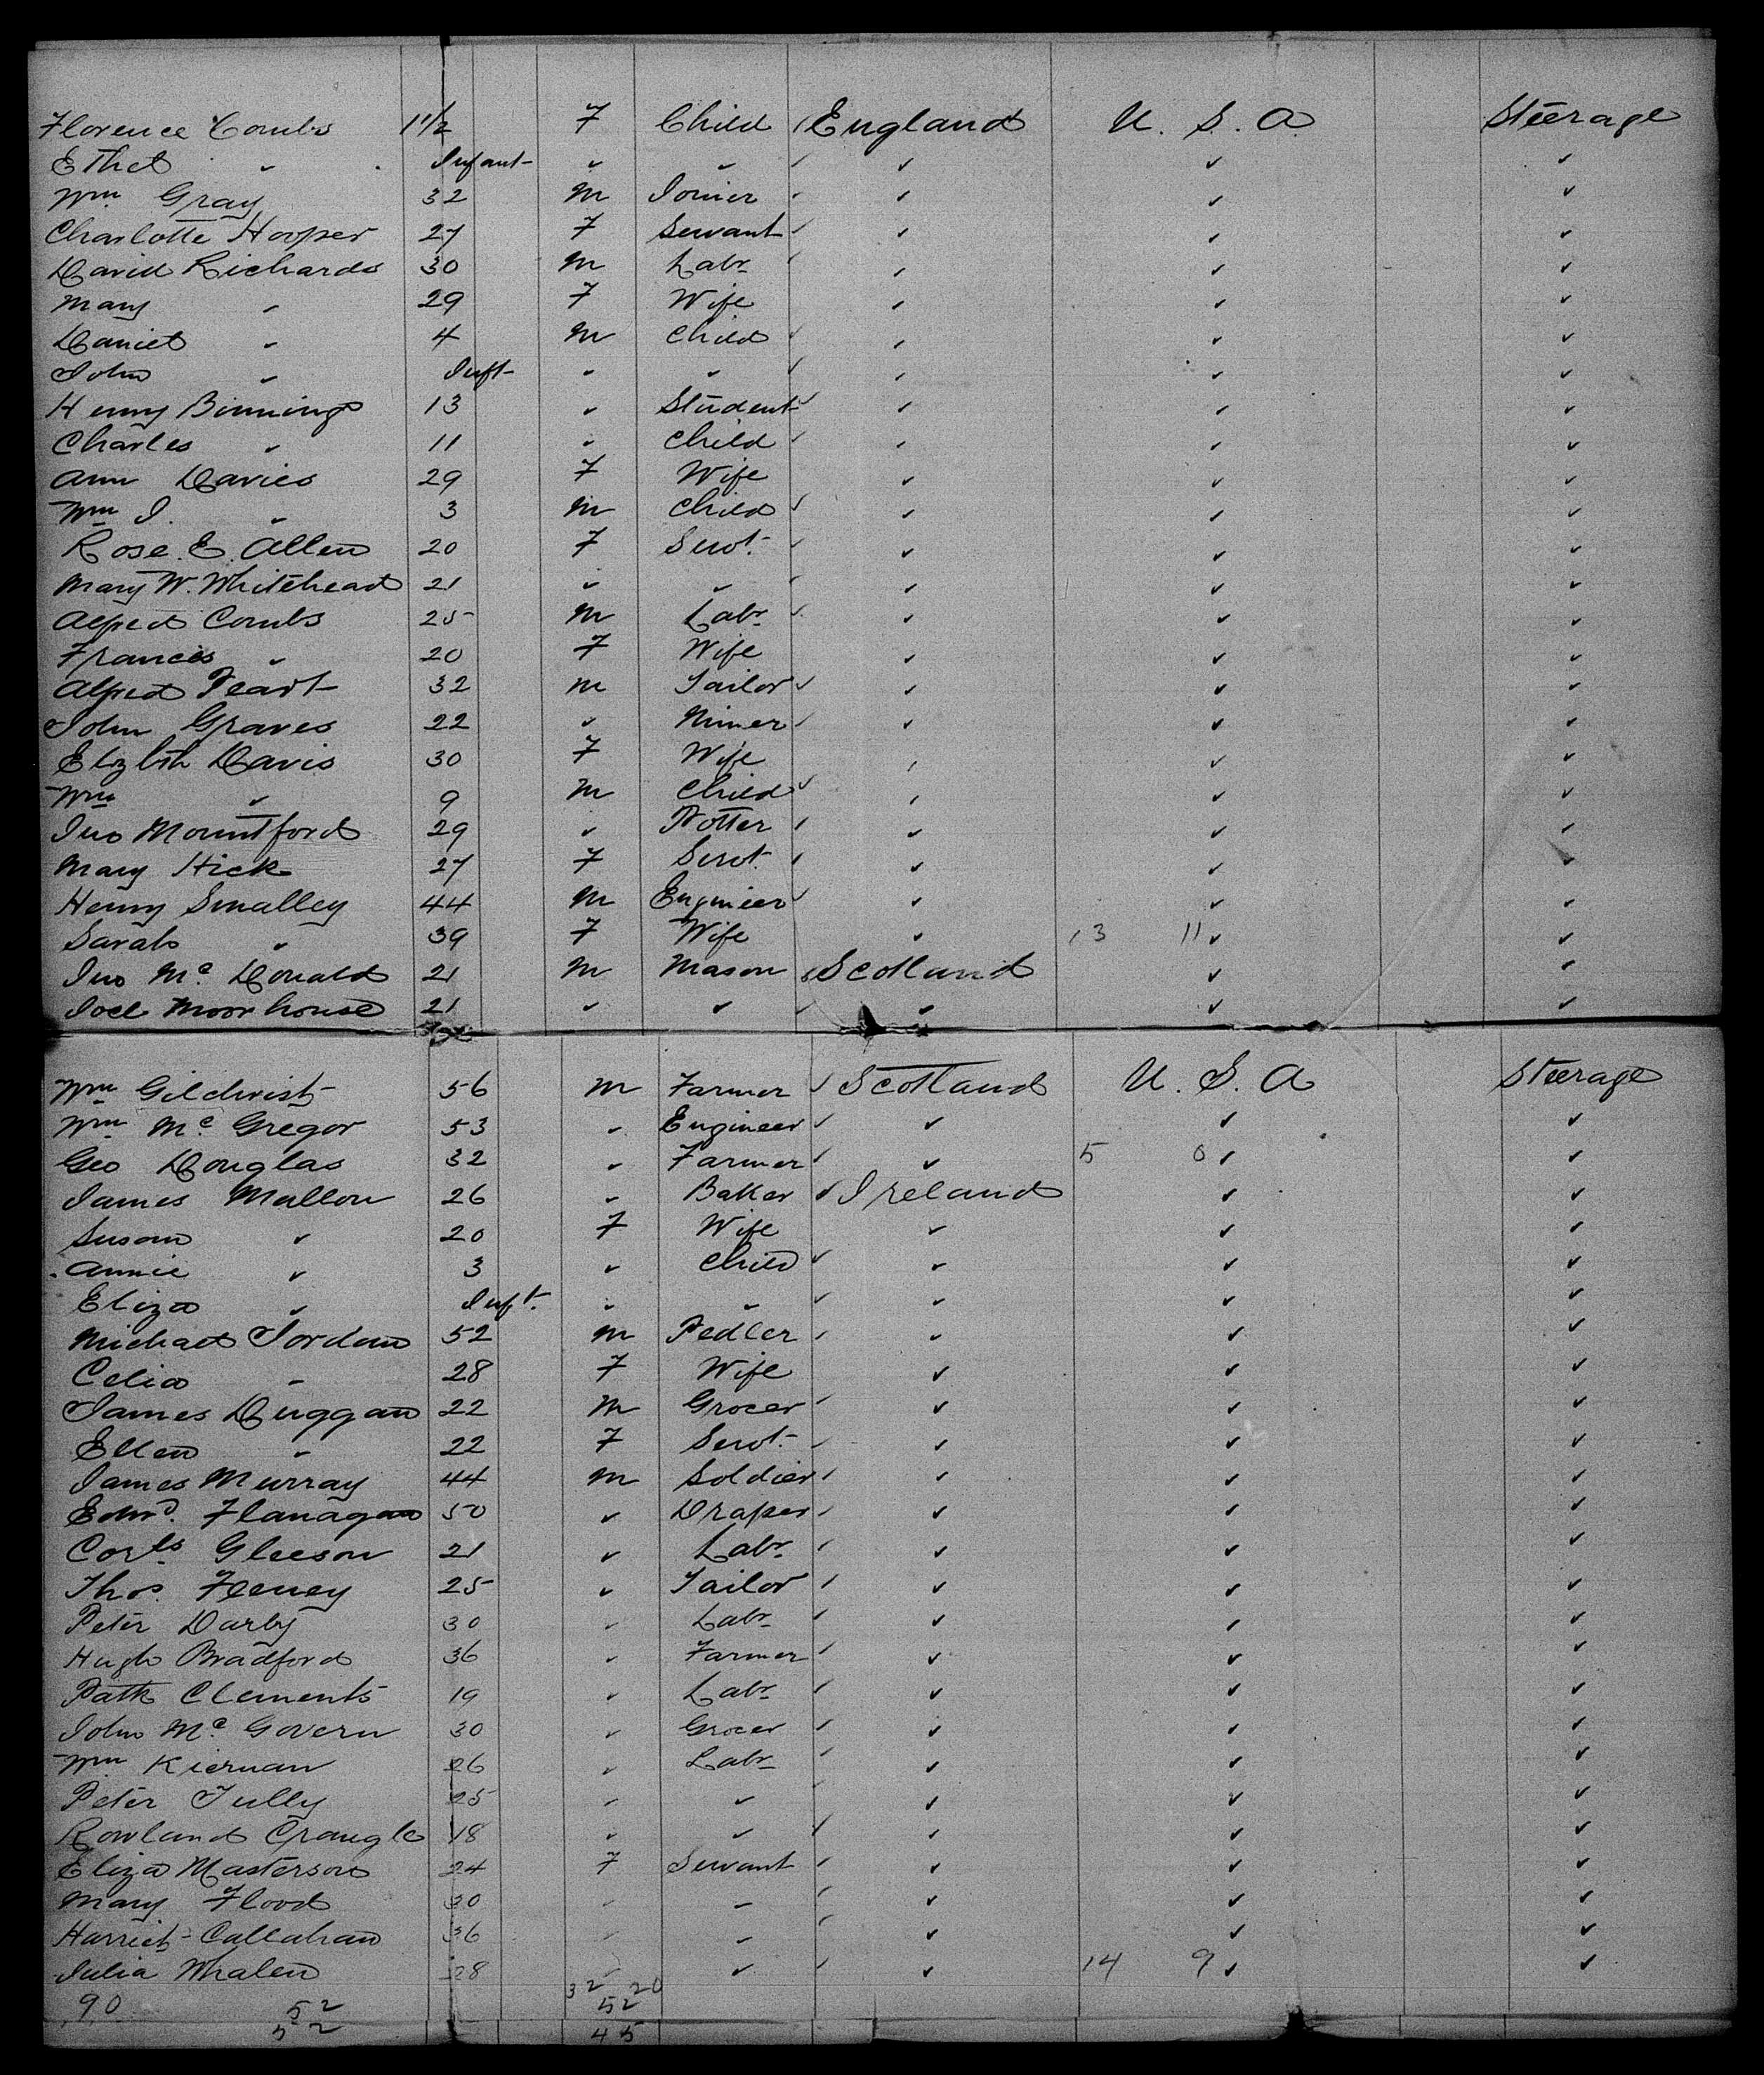 Florence Combs 1 1/2 F Child England U. S. A Steerage
Ethel " Infant " " " " "
Wm Gray 32 M Joiner " " "
Charlotte Hooper 27 F Servant " " "
David Richards 30 M Labr " " "
Mary " 29 F Wife " " "
Daniel " 4 M Child " " "
John " Inft " " " " "
Henry Binnings 13 " Student " " "
Charles " 11 " Child " " "
Ann Davies 29 F Wife " " "
Wm J. " 3 M Child " " "
Rose. E. Allen 20 F Servt. " " "
Mary W. Whitehead 21 " " " " "
Alfred Combs 25 M Labr " " "
Frances " 20 F Wife " " "
Alfred Peart 32 M Tailor " " "
John Graves 22 " Miner " " "
Elizbth Davis 30 F Wife " " "
Wm " 9 M Child " " "
Jno Mountford 29 " Potter " " "
Mary Hick 27 F Servt. " " "
Henry Smalley 44 M Engineer " " "
Sarah " 39 F Wife " 13 11 " "
Jno Mc Donald 21 M Mason Scotland " "
Joel Moorhouse 21 " " " " "
Wm Gilchrist 56 M Farmer Scotland U. S. A Steerage
Wm Mc Gregor 53 " Engineer " " "
Geo Douglas 32 " Farmer " 5 0 " "
James Mallon 26 " Baker Ireland " "
Susan " 20 F Wife " " "
Annie " 3 " Child " " "
Eliza " Inft. " " " " "
Michael Jordan 52 M Pedler " " "
Celia " 28 F Wife " " "
James Duggan 22 M Grocer " " "
Ellen " 22 F Servt. " " "
James Murray 44 M Soldier " " "
Edwd. Flanagan 50 " Draper " " "
Corls Gleeson 21 " Labr " " "
Thos. Feeney 25 " Tailor " " "
Peter Darby 30 " Labr " " "
Hugh Bradford 36 " Farmer " " "
Patk Clements 19 " Labr " " "
John Mc Govern 30 " Grocer " " "
Wm Kiernan 26 " Labr " " "
Peter Tully 25 " " " " "
Rowland Crangle 18 " " " " "
Eliza Masterson 24 F Servant " " "
Mary Flood 30 " " " " "
Harriet Callahan 36 " " " " "
Julia Whalen 28 " " " 14 9 " "
90 52 32 20
52 52
45